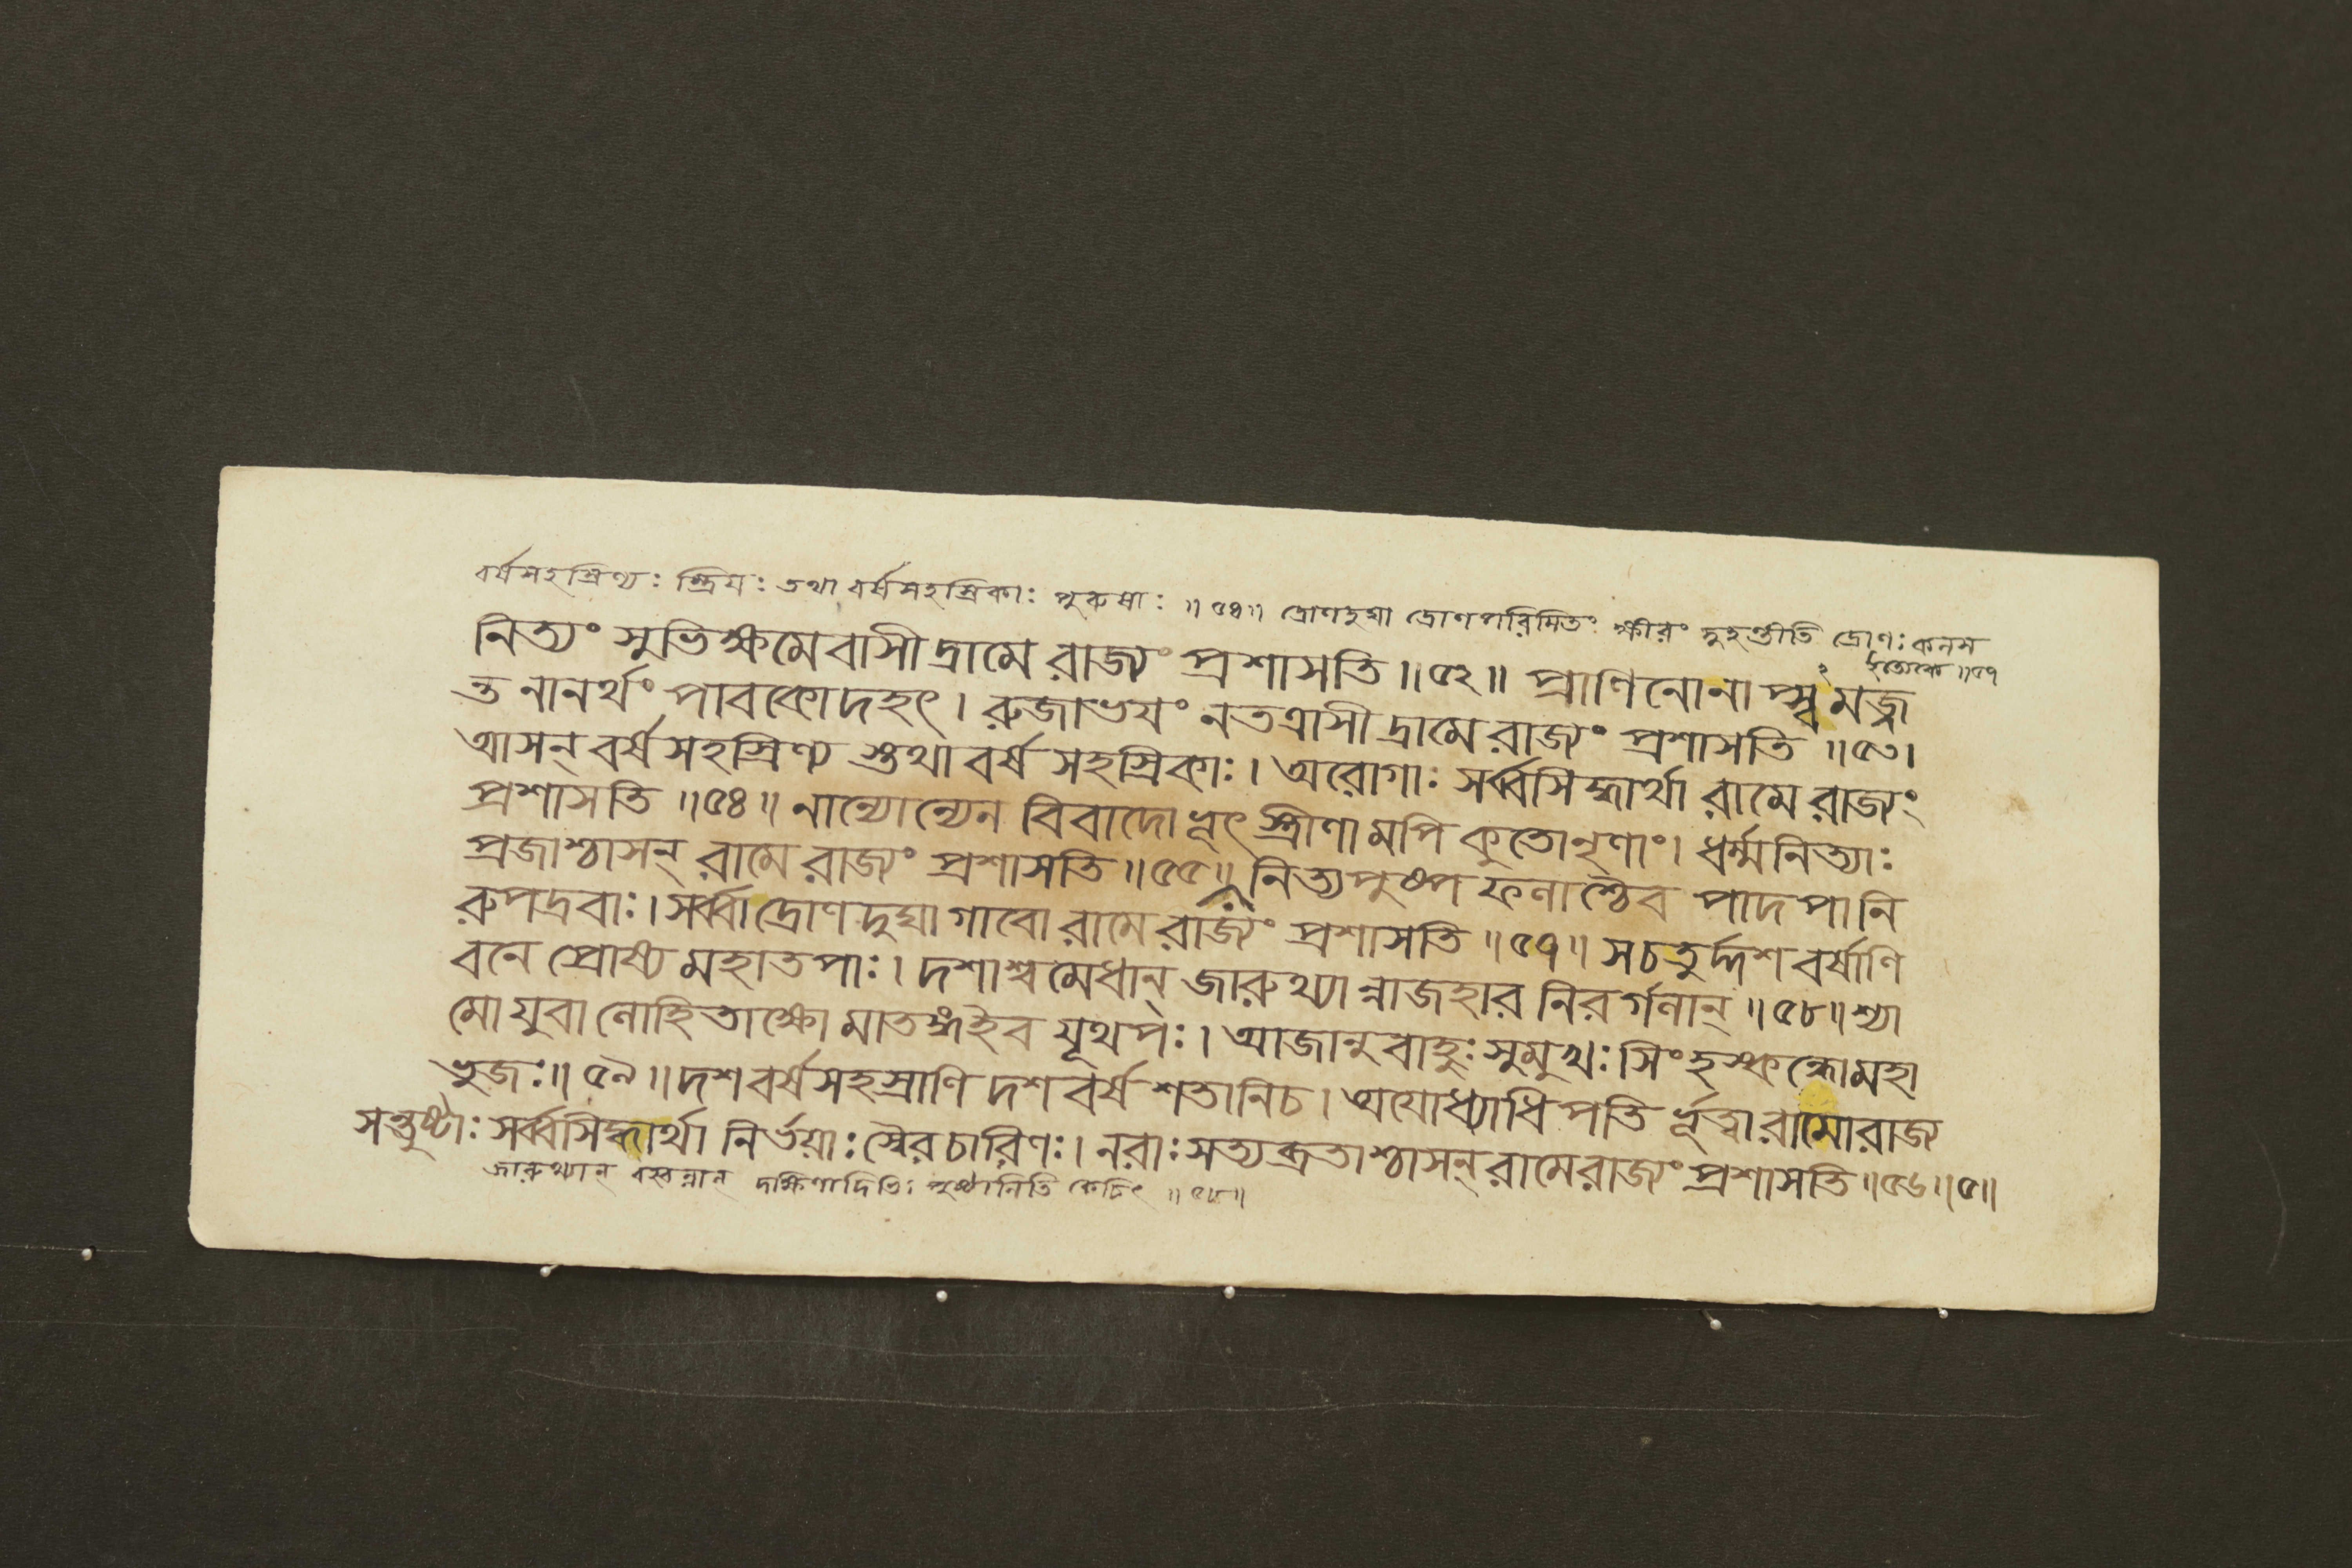 বর্ষসহস্রিণ্যঃ স্ত্রিয়ঃ তথা বর্ষসহস্রিকাঃ পুরুষাঃ ॥ ৫৪॥ দ্রোণদুঘা দ্রোণপরিমিতং ক্ষীরং দুহন্তীতি দ্রোণঃ কলস
ইত্যেকে ॥৫৭
নিত্যং সুভিক্ষমেবাসীদ্রামে রাজ্যং প্রশাসতি ॥৫২॥ প্রাণিনোনাপ্সু মজ্জ
ন্ত নানর্থং পাবকোদহৎ। রুজাভযং নতত্রাসীদ্রামে রাজ্যং প্রশাসতি ॥৫৩।
আসন্ বর্ষসহস্রিণ্য স্তথা বর্ষ সহস্রিকাঃ। অরোগাঃ সর্ব্বসিদ্ধার্থা রামে রাজ্যং
প্রশাসতি ॥৫৪॥ নান্যোন্যেন বিবাদোভূৎ স্ত্রীণামপি কুতোনৃণাং। ধর্ম্মনিত্যাঃ
প্রজাশ্চাসন্ রামে রাজ্যং প্রশাসতি ॥৫৫॥ নিত্যপুষ্পফলাশ্চৈব পাদপানি
রুপদ্রবাঃ। সর্ব্বাদ্রোণদুঘা গাবো রামে রাজ্যং প্রশাসতি ॥৫৭॥ সচতুর্দ্দশবর্ষাণি
বনে প্রোষ্য মহাতপাঃ। দশাশ্বমেধান্ জারুথ্যান্নাজহার নিরর্গলান্ ॥৫৮॥ শ্যা
মো যুবা লোহিতাক্ষো মাতঙ্গইব যূথপঃ। আজানুবাহুঃ সুমুখঃ সিংহস্কন্ধোমহা
ভুজঃ॥ ৫৯॥ দশবর্ষসহস্রাণি দশবর্ষ শতানিচ। অযোধ্যাধিপতি র্ভূত্বা রামোরাজ
সন্তুষ্টাঃ সর্ব্বসিদ্ধার্থা নির্ভয়াঃ স্বৈরচারিণঃ। নরাঃ সত্যব্রতাশ্চাসন্ রামেরাজ্যং প্রশাসতি ॥৫৬॥৫॥
জারুথ্যান্ দক্ষিণাদিভিঃ পুষ্টানিতি কেচিৎ ॥৫৮॥